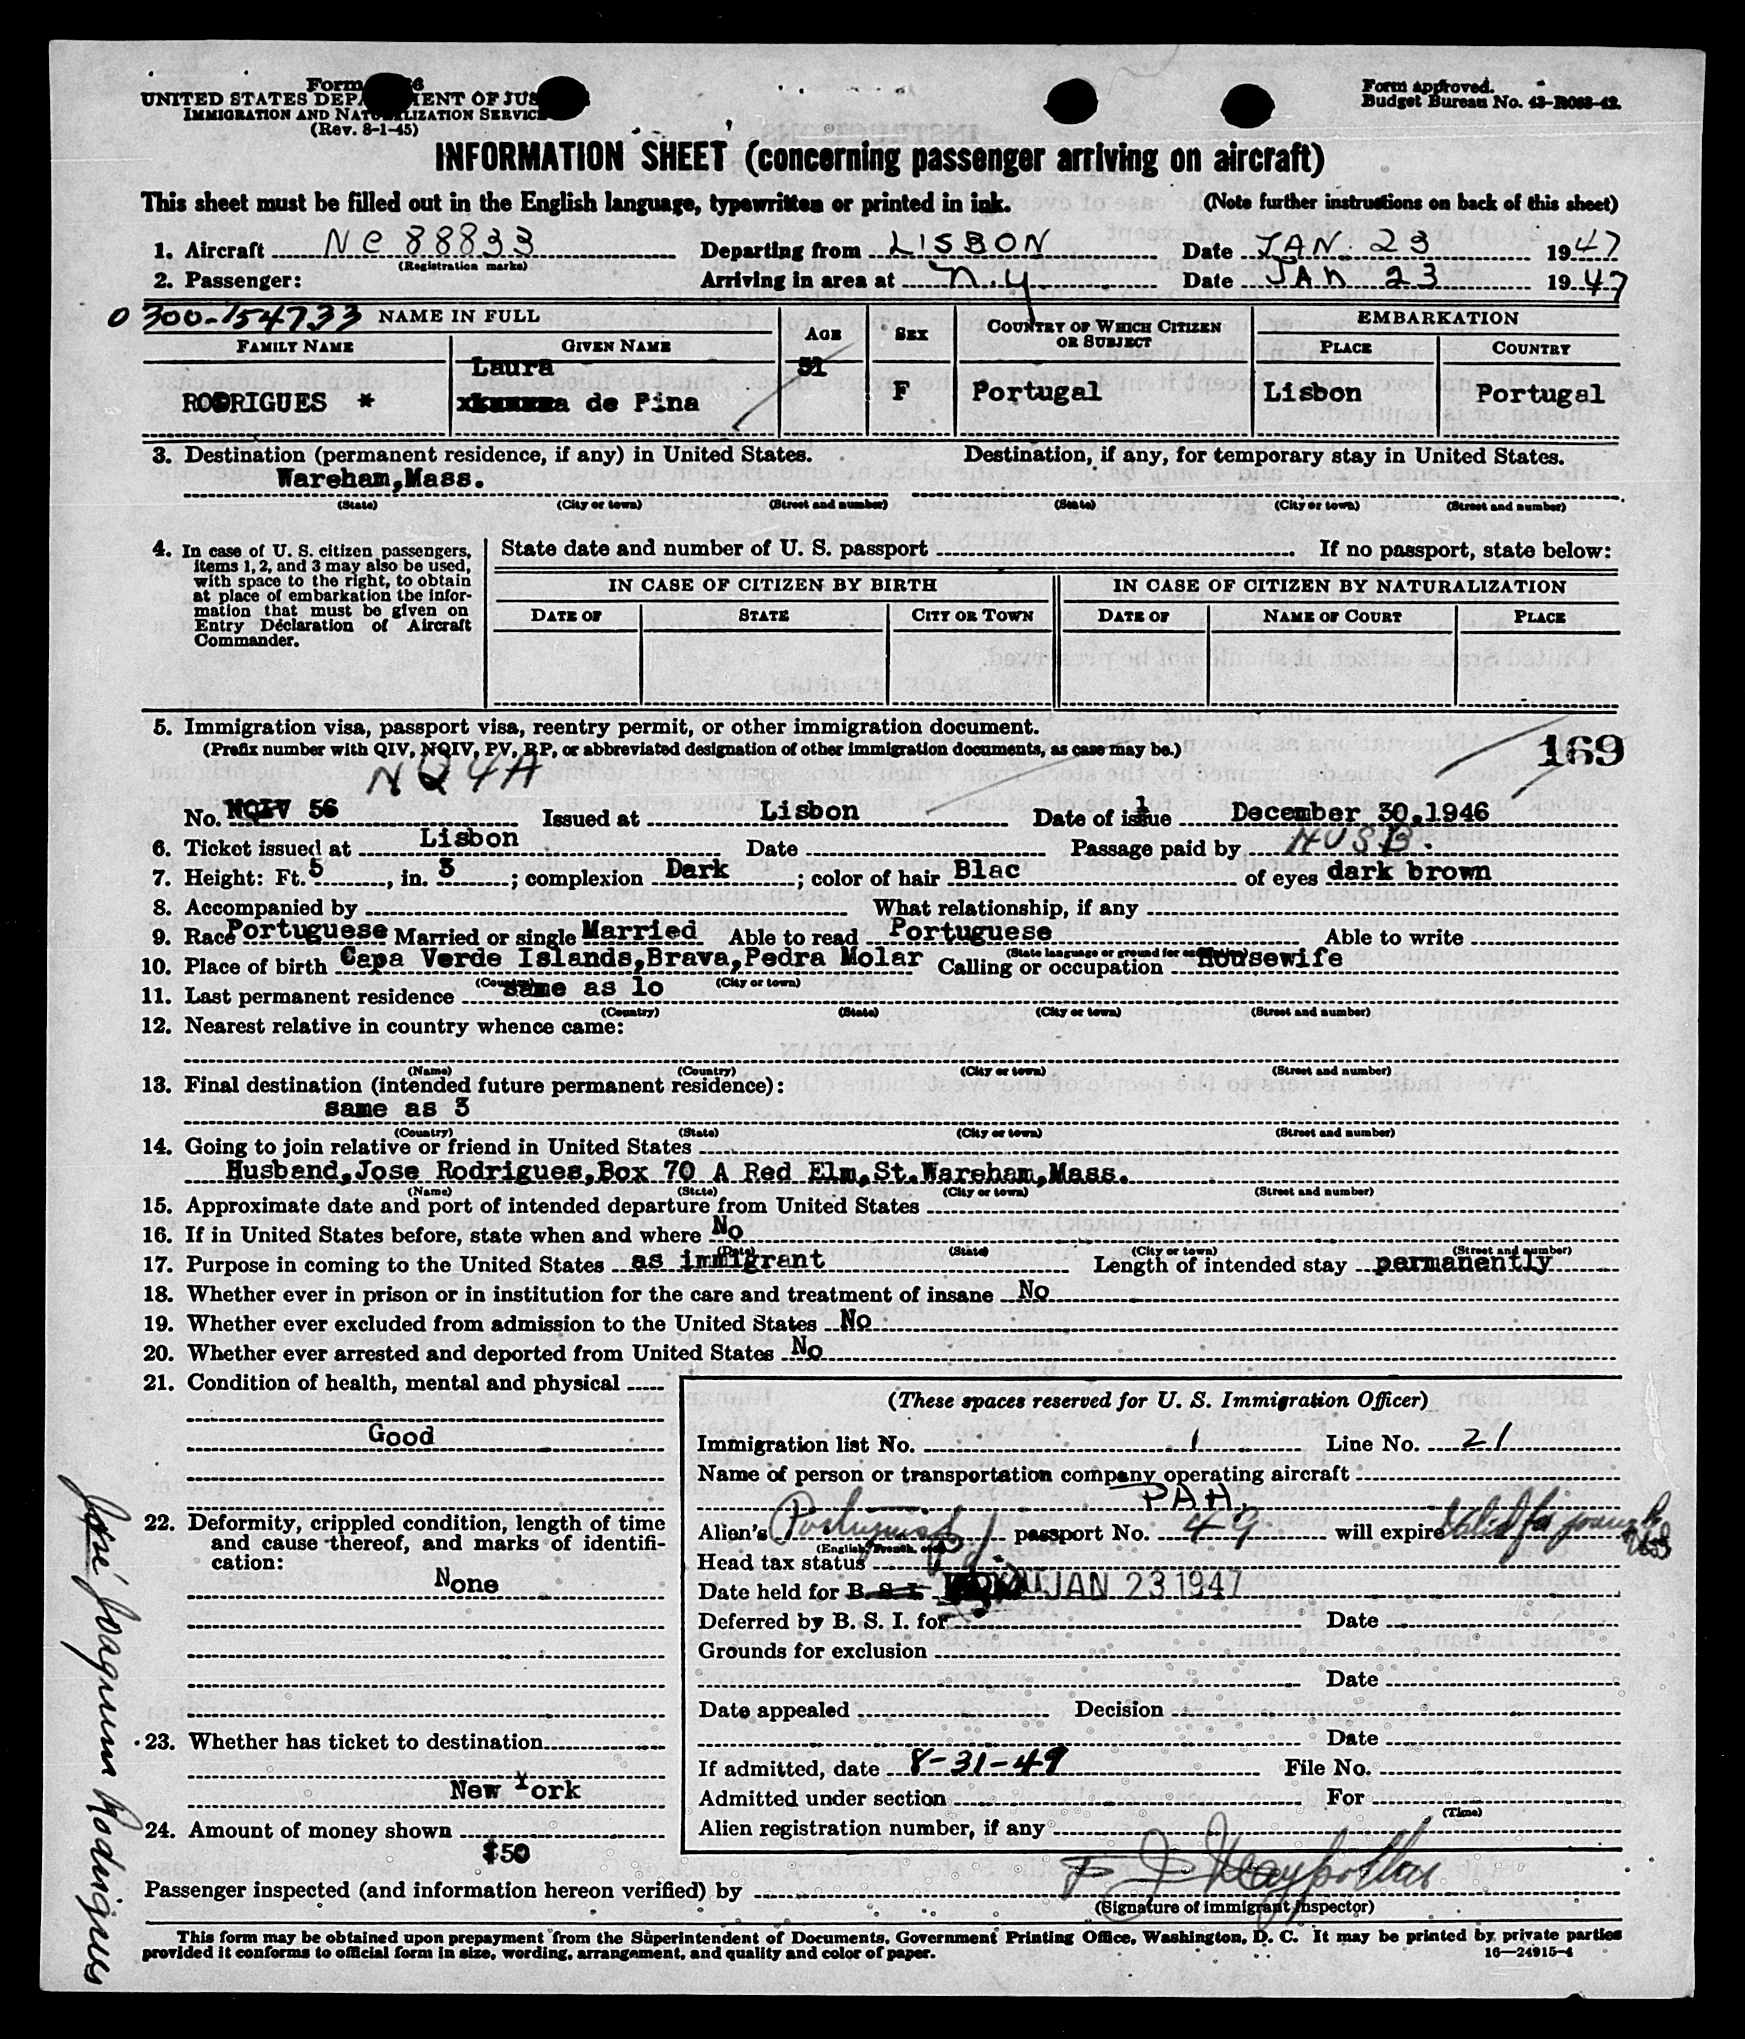 Form
UNITED STATES DEPARTMENT OF JUS
IMMIGRATION AND NATURALIZATION SERVICE
(Rev. 8-1-45)
Form approved.
Budget Bureau No. 43-R063-42.
INFORMATION SHEET (concerning passenger arriving on aircraft)
This sheet must be filled out in the English language, typewritten or printed in ink. (Note further instructions on back of this sheet)
1. Aircraft NC 88833 Departing from LISBON Date JAN. 23 1947
(Registration marks)
2. Passenger: Arriving in area at N.Y Date JAN 23 1947
0300-154733 NAME IN FULL AGE SEX COUNTRY OF WHICH CITIZEN OR SUBJECT EMBARKATION
FAMILY NAME GIVEN NAME PLACE COUNTRY
Laura 51
RODRIGUES * de Pina F Portugal Lisbon Portugal
3. Destination (permanent residence, if any) in United States. Destination, if any, for temporary stay in United States.
Wareham,Mass.
(State) (City or town) (Street and number) (State) (City or town) (Street and number)
4. In case of U. S. citizen passengers, items 1, 2, and 3 may also be used, with space to the right, to obtain at place of embarkation the information that must be given on Entry Declaration of Aircraft Commander.
State date and number of U. S. passport If no passport, state below:
IN CASE OF CITIZEN BY BIRTH IN CASE OF CITIZEN BY NATURALIZATION
DATE OF STATE CITY OR TOWN DATE OF NAME OF COURT PLACE
5. Immigration visa, passport visa, reentry permit, or other immigration document.
(Prefix number with QIV, NQIV, PV, RP, or abbreviated designation of other immigration documents, as case may be.)
169
NQ4A
No. NQIV 56 Issued at Lisbon Date of issue December 30.1946
6. Ticket issued at Lisbon Date Passage paid by HUSB.
7. Height: Ft. 5, in. 3; complexion Dark; color of hair Blac of eyes dark brown
8. Accompanied by What relationship, if any
9. Race Portuguese Married or single Married Able to read Portuguese Able to write
(State language or ground for exemption)
10. Place of birth Capa Verde Islands,Brava,Pedra Molar Calling or occupation Housewife
(Country) (City or town)
11. Last permanent residence same as 1o
(Country) (State) (City or town) (Street and number)
12. Nearest relative in country whence came:
(Name) (Country) (City or town) (Street and number)
13. Final destination (intended future permanent residence):
same as 3
(Country) (State) (City or town) (Street and number)
14. Going to join relative or friend in United States
Husband,Jose Rodrigues,Box 70 A Red Elm,St.Wareham,Mass.
(Name) (State) (City or town) (Street and number)
15. Approximate date and port of intended departure from United States
16. If in United States before, state when and where No
(Date) (State) (City or town) (Street and number)
17. Purpose in coming to the United States as immigrant Length of intended stay permanently
18. Whether ever in prison or in institution for the care and treatment of insane No
19. Whether ever excluded from admission to the United States No
20. Whether ever arrested and deported from United States No
21. Condition of health, mental and physical
Good
22. Deformity, crippled condition, length of time
and cause thereof, and marks of identifi-
cation:
None
23. Whether has ticket to destination
New York
24. Amount of money shown
$50
(These spaces reserved for U. S. Immigration Officer)
Immigration list No. 1 Line No. 21
Name of person or transportation company operating aircraft
PAA.
Alien's Portuguese passport No. 49 will expire
(English, French, etc.)
Head tax status
Date held for B. S. I. JAN 23 1947
Deferred by B. S. I. for Date
Grounds for exclusion
Date
Date appealed Decision
Date
If admitted, date 8-31-49 File No.
Admitted under section For
(Time)
Alien registration number, if any
Passenger inspected (and information hereon verified) by
(Signature of immigrant inspector)
This form may be obtained upon prepayment from the Superintendent of Documents, Government Printing Office, Washington, D. C. It may be printed by private parties
provided it conforms to official form in size, wording, arrangement, and quality and color of paper. 16—24915-4
José Joaquim Rodrigues